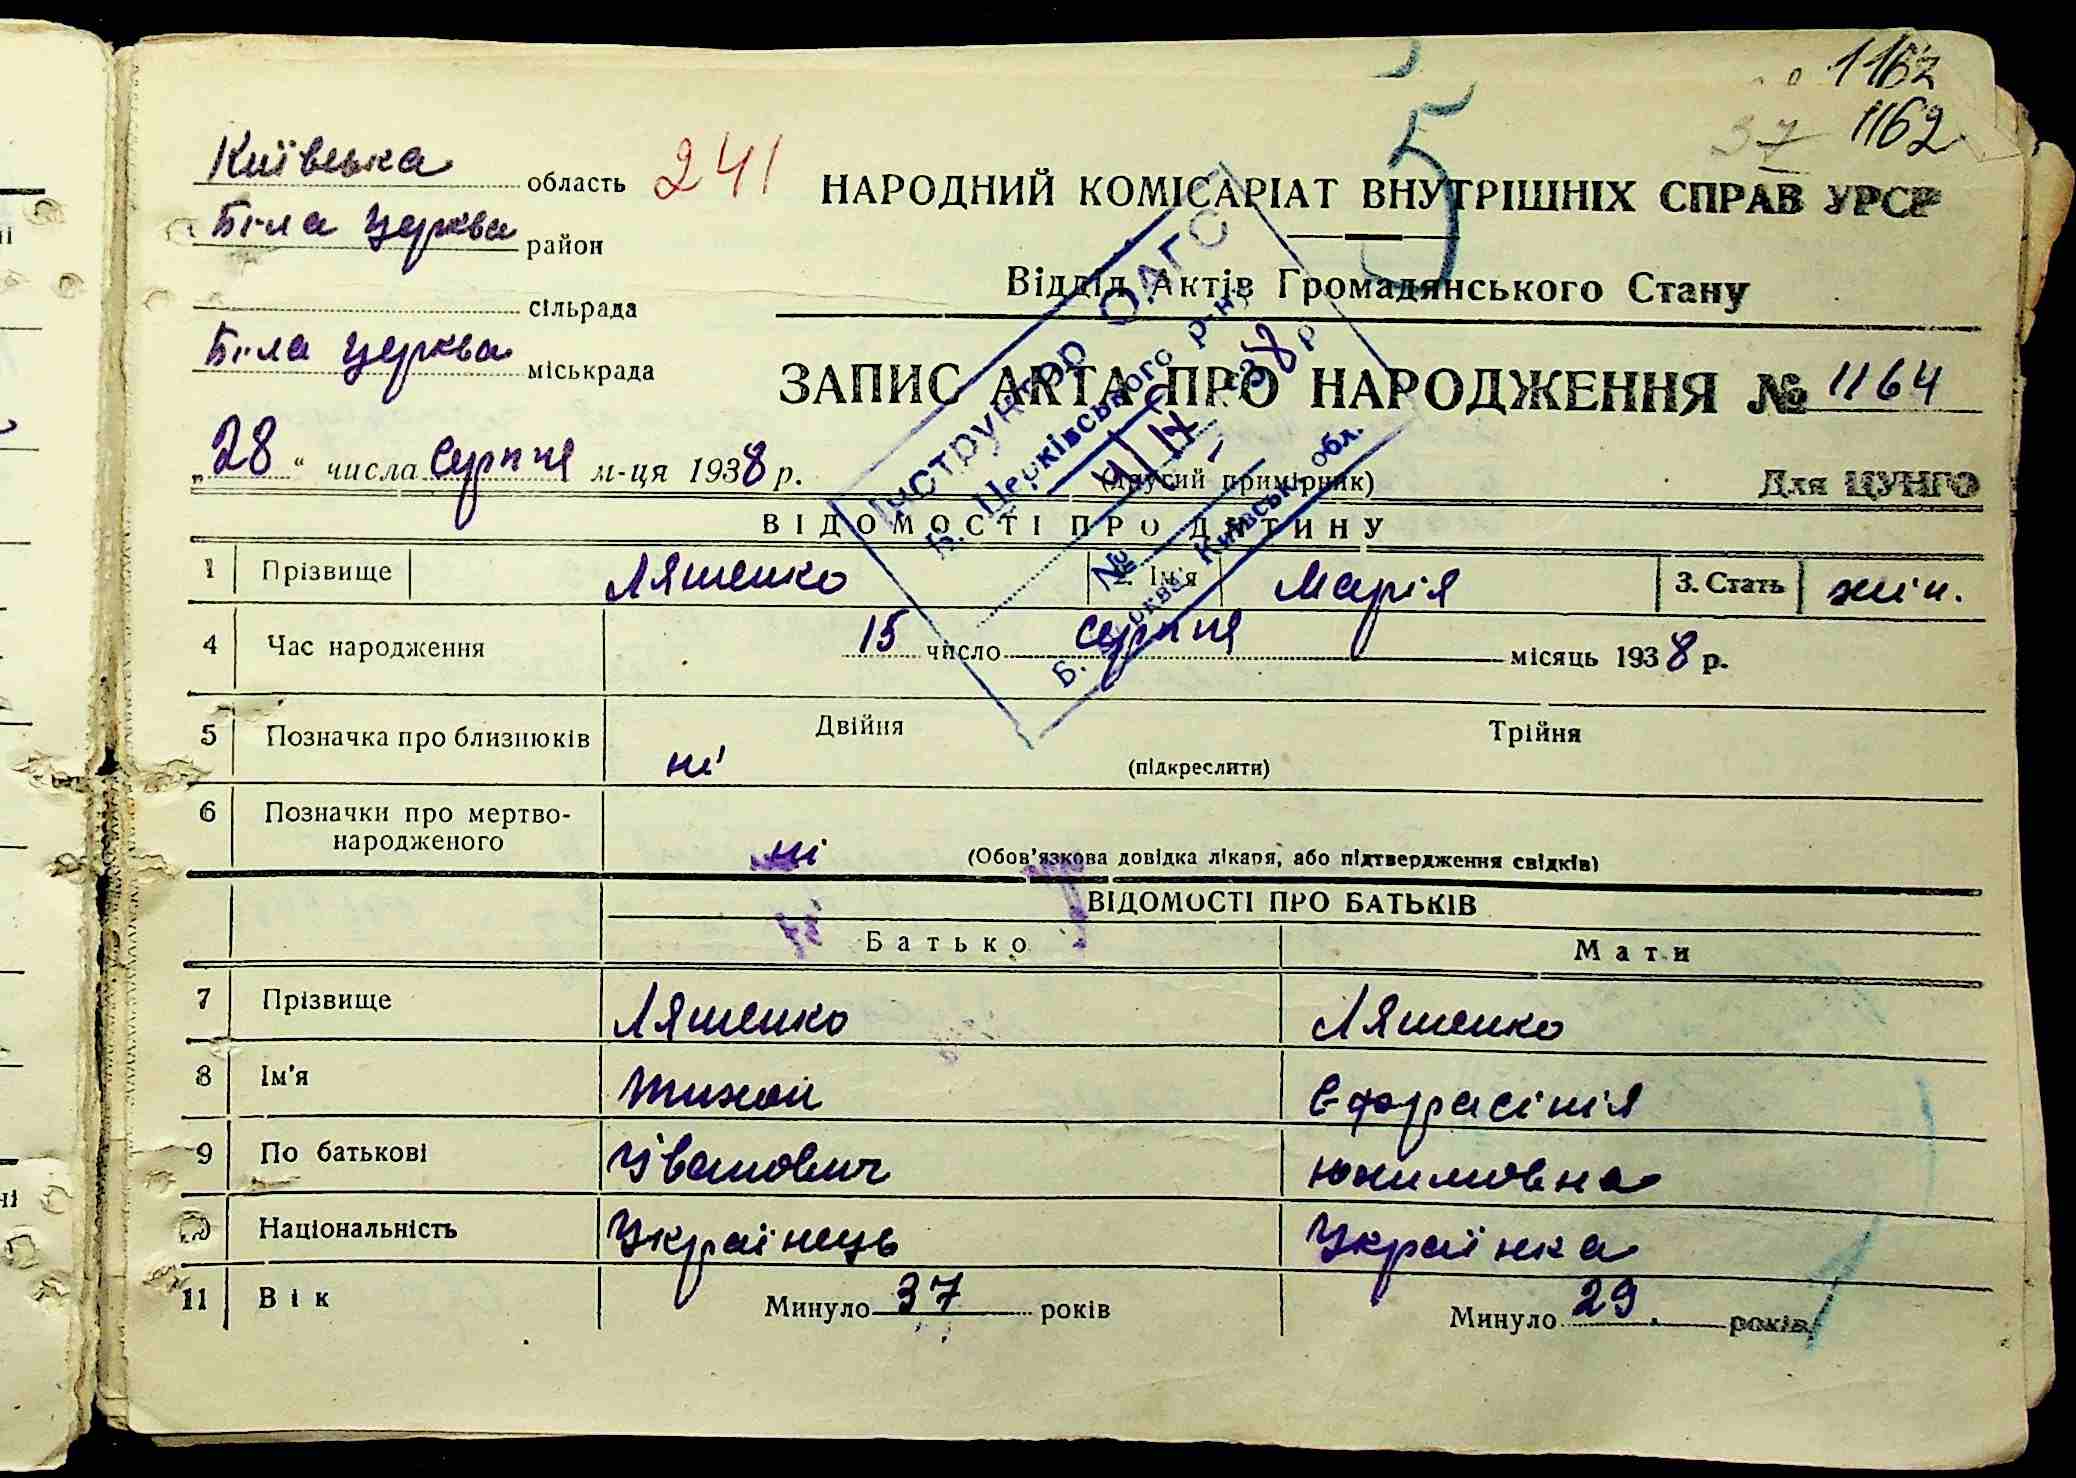 1162
37 1162
Київська область 241
Біла Церква район
сільрада
Біла Церква міськрада
НАРОДНИЙ КОМІСАРІАТ ВНУТРІШНІХ СПРАВ УРСР
5
Відділ Актів Громадянського Стану
ЗАПИС АКТА ПРО НАРОДЖЕННЯ № 1164
„28“ числа серпня м-ця 1938 р.
(другий примірник)
Для ЦУНГО
Інструктор ОАГС
Б. Церківського р-ну
№
Б. Церква, Київськ. обл.
ВІДОМОСТІ ПРО ДИТИНУ
1 Прізвище Ляшенко 2. Ім'я Марія 3. Стать жін.
4 Час народження 15 число серпня місяць 1938 р.
5 Позначка про близнюків ні Двійня Трійня
(підкреслити)
6 Позначки про мертво-
народженого ні (Обов'язкова довідка лікаря, або підтвердження свідків)
ВІДОМОСТІ ПРО БАТЬКІВ
Батько Мати
7 Прізвище Ляшенко Ляшенко
8 Ім'я Тихон Єфрасінія
9 По батькові Іванович Юхимовна
10 Національність Українець Українка
11 Вік Минуло 37 років Минуло 29 років